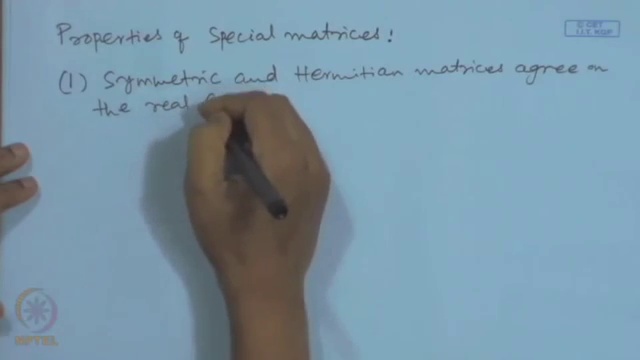 Properties of Special matrices:
(1) Symmetric and Hermitian matrices agree on
the real
© CET
I.I.T. KGP
NPTEL